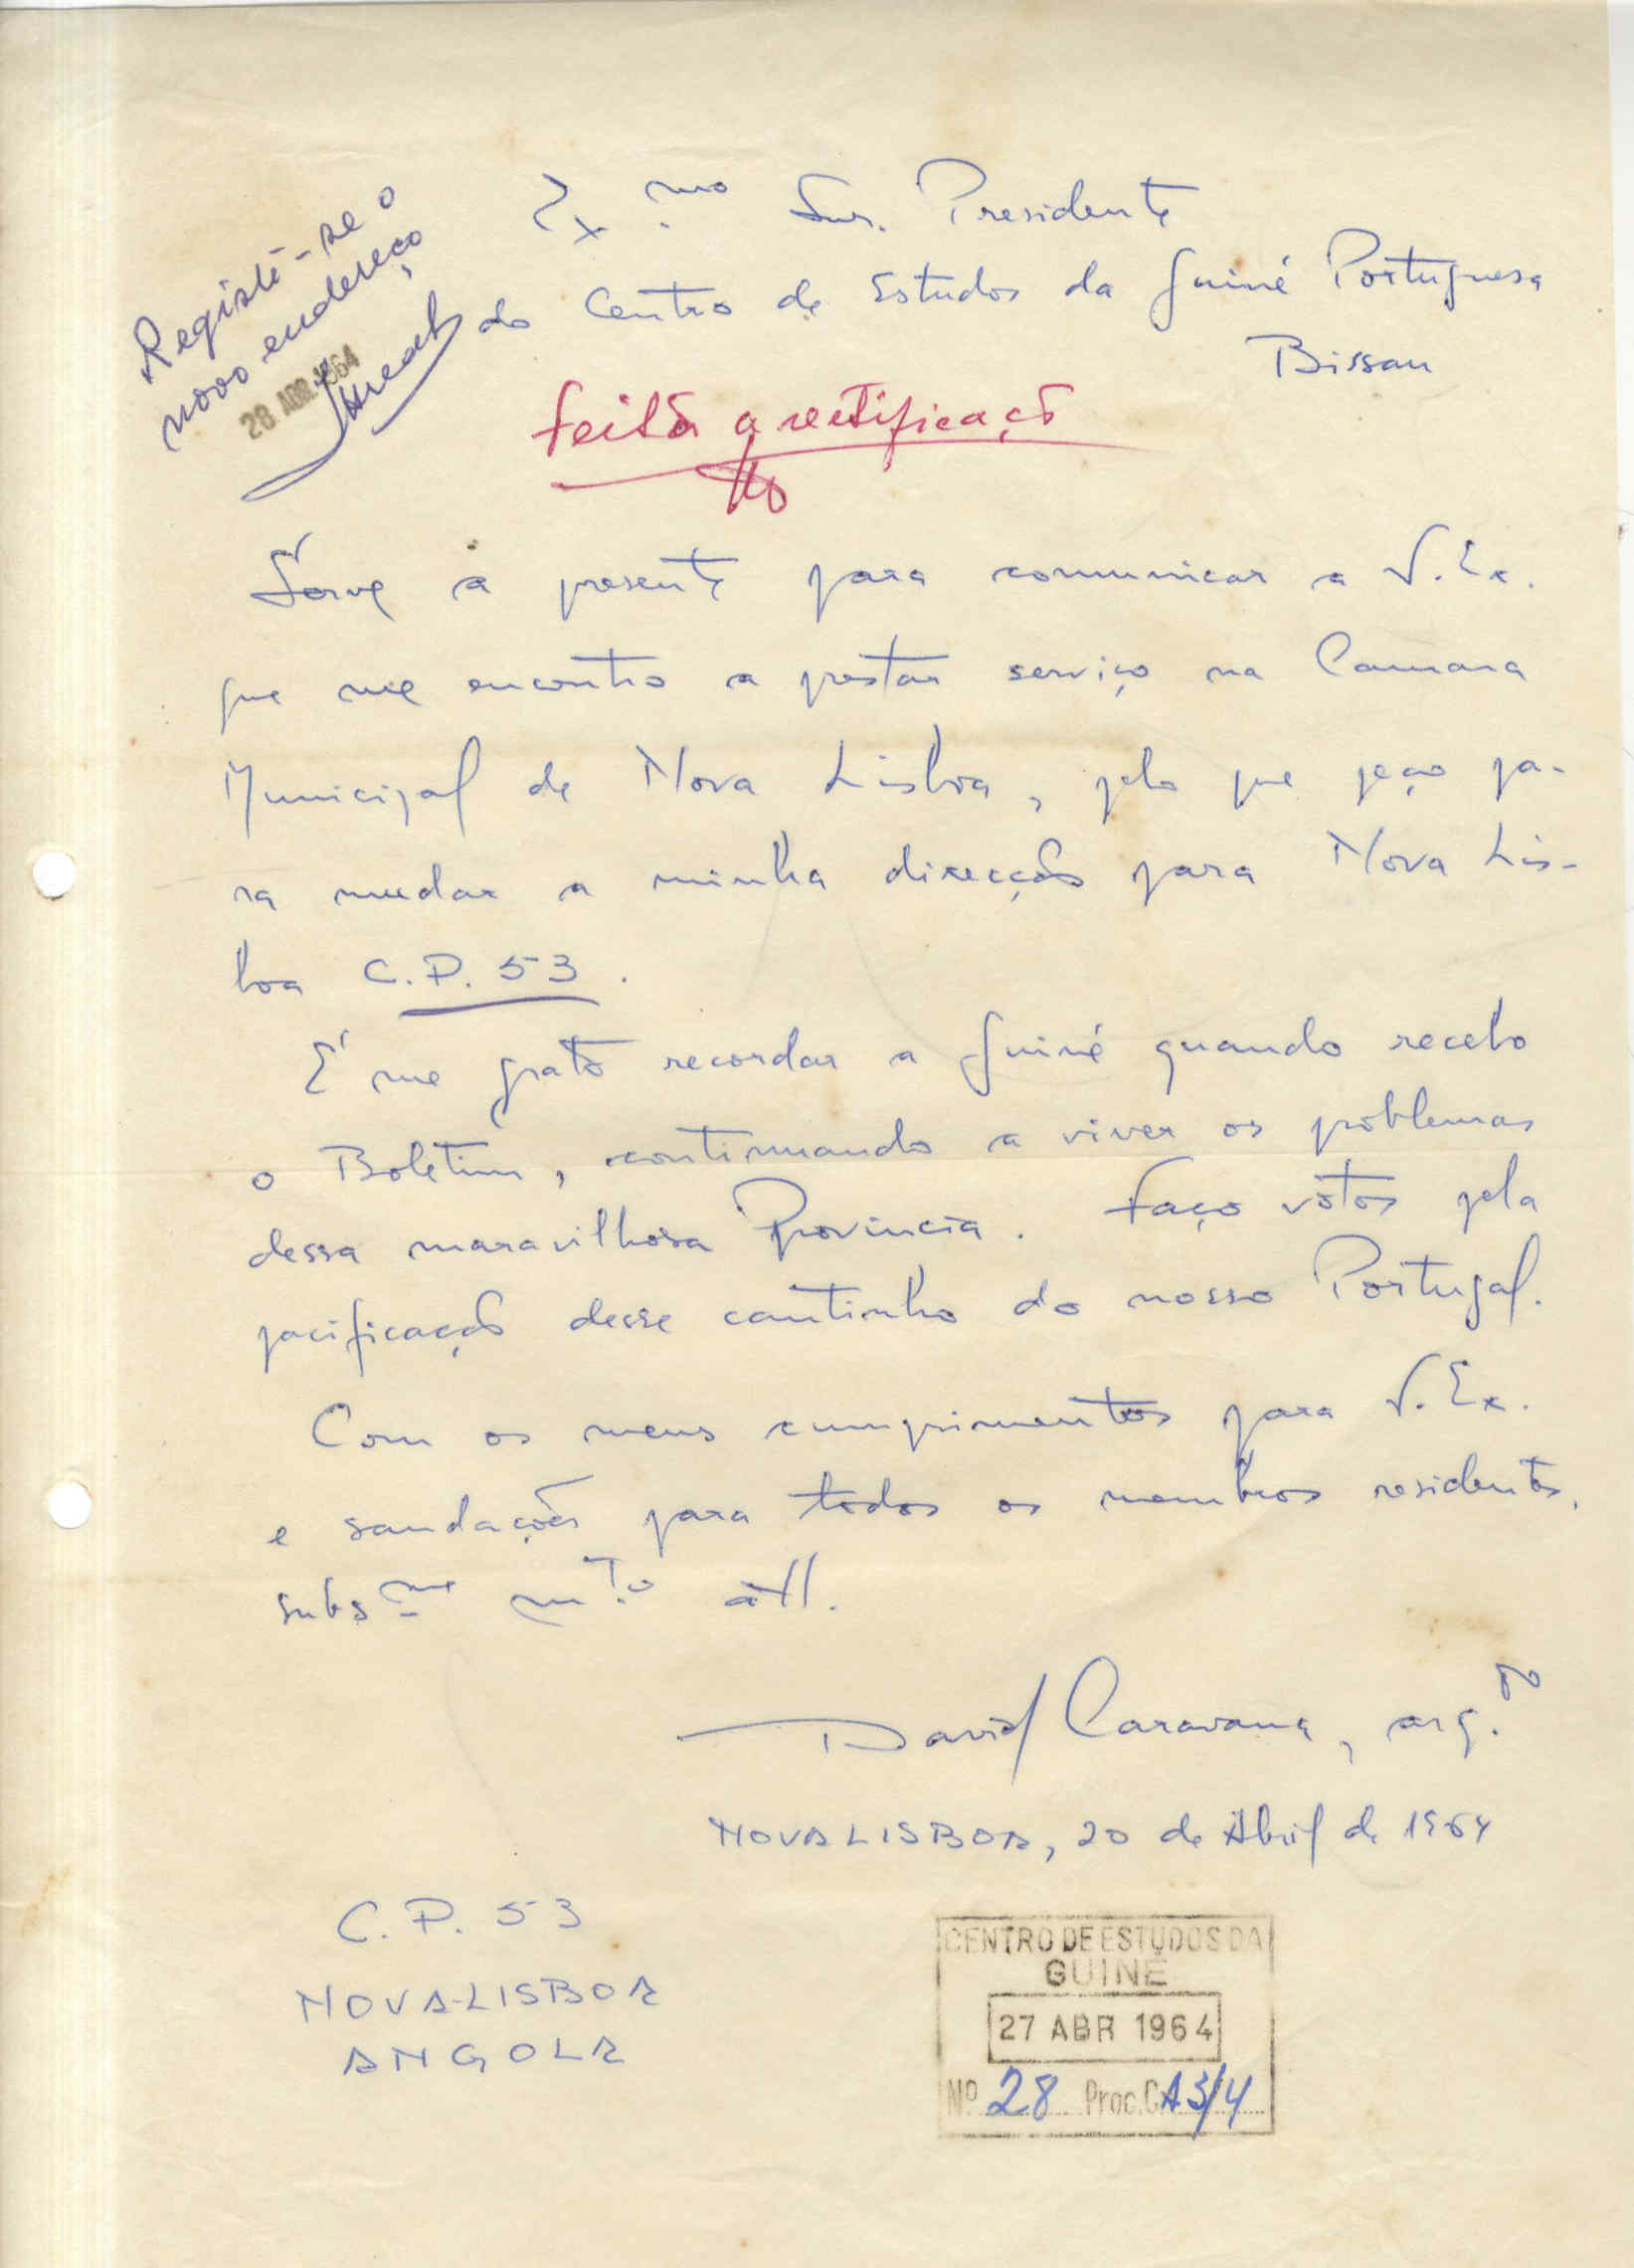 Ex.mo Snr. Presidente
do Centro de Estudos da Guiné Portuguesa
Bissau
Registe-se o
novo endereço
28 ABR. 1964
feita a rectificação
Serve a presente para comunicar a V. Ex.
que me encontro a prestar serviço na Camara
Municipal de Nova Lisboa, pelo que peço pa-
ra mudar a minha direcção para Nova Lis-
boa C.P. 53.
É me grato recordar a Guiné quando recebo
o Boletim, continuando a viver os problemas
dessa maravilhosa Provincia. Faço votos pela
pacificação desse cantinho do nosso Portugal.
Com os meus cumprimentos para V. Ex.
e saudações para todos os membros residentes,
subs.me m.to att.
David Caravana, arq.to
NOVA LISBOA, 20 de Abril de 1964
C.P. 53
NOVA-LISBOA
ANGOLA
CENTRO DE ESTUDOS DA
GUINÉ
27 ABR 1964
Nº 28 Proc. CA3/4